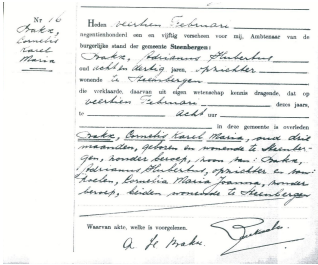 Nr 16
Bakx,
Cornelis
Karel
Maria
Heden veertien Februari
negentienhonderd een en vijftig verscheen voor mij, Ambtenaar van de
burgerlijke stand der gemeente Steenbergen:
Bakx, Adrianus Hubertus
oud acht en dertig jaren, opzichter
wonende te Steenbergen
die verklaarde, daarvan uit eigen wetenschap kennis dragende, dat op
veertien Februari dezes jaars,
te acht uur
in deze gemeente is overleden
Bakx, Cornelis Karel Maria, oud drie
maanden, geboren en wonende te Steenber-
gen, zonder beroep, zoon van: Bakx,
Adrianus Hubertus, opzichter en van
Cornelia Maria Joanna, zonder
beroep, beiden wonende te Steenbergen
Waarvan akte, welke is voorgelezen.
A H Bakx.